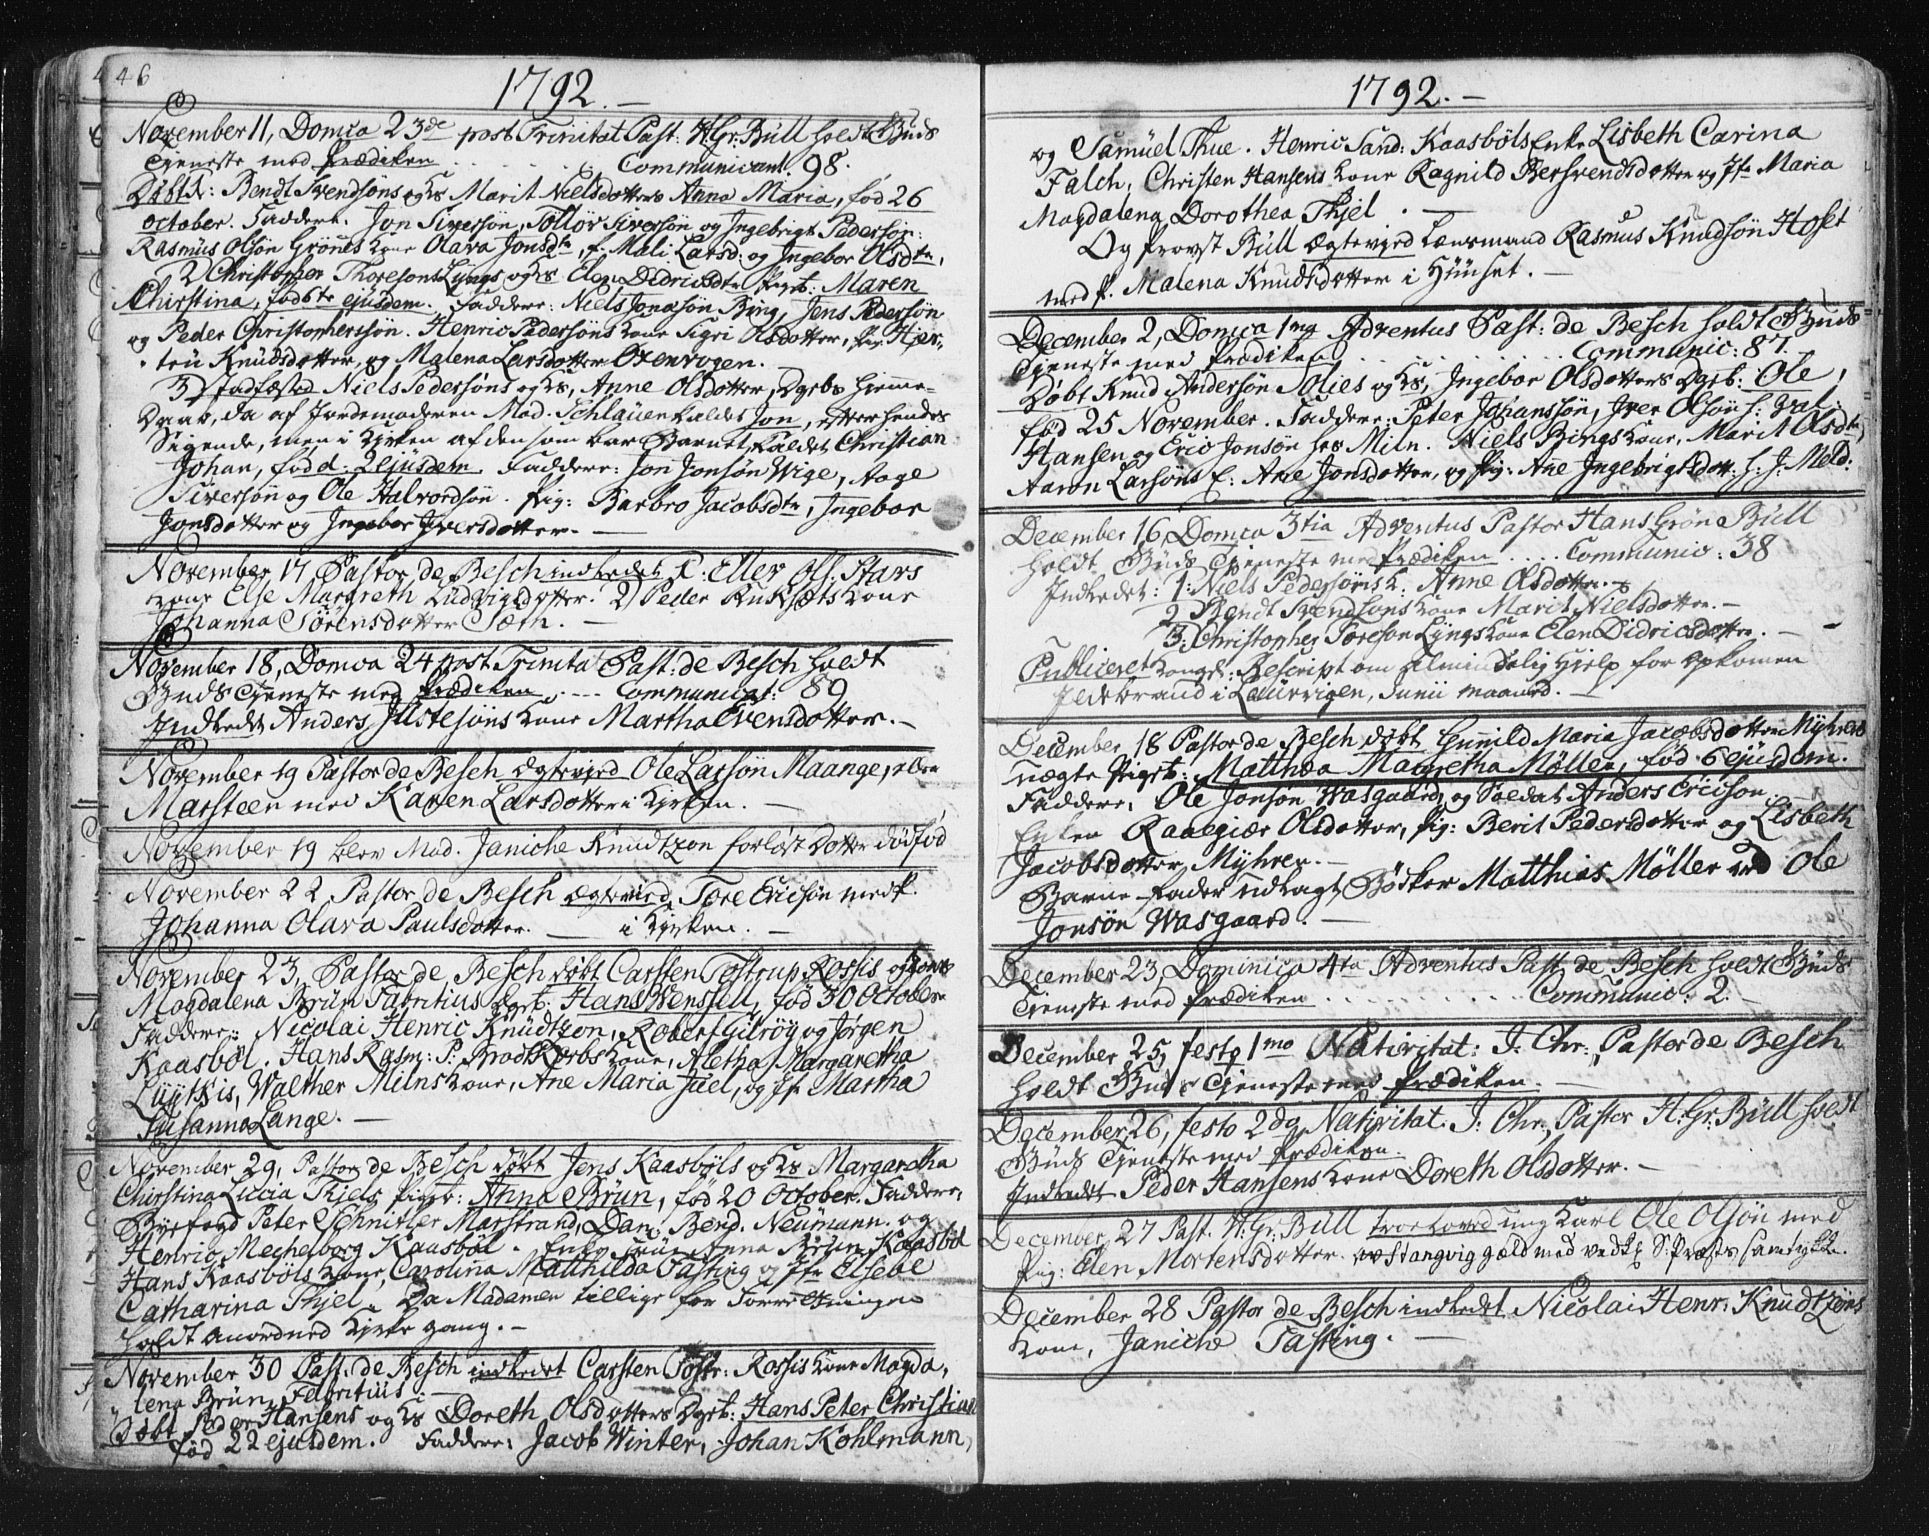 46
1792.
November 11, Domca 23de post Trinitat Past: H. Gr. Büll holdt Guds
Tjeneste med Prædiken . . . . . Communicant. 98.
Døbt 1: Bendt Svendsøns og Hs Marit Nielsdotters Anna Maria, fød 26
October. Faddere. Jon Siversøn, Tollov Siversøn og Ingebrigt Pedersøn:
Rasmus Olsøn Grønnes kone Olava Jonsdtr, P. Mali Larsd: og Ingebor Olsdtr,
2 Christopher Thoresons Lyngs og Hs Elen Didricsdtr Pigeb: Maren
Christina, fød 6te ejusdem. Faddere: Niels Jonasøn Bing, Jens Pedersøn
og Peder Christophersøn. Henric Pedersøns kone Sigri Olsdotter, Pig: Hjer-
trü Knüdsdotter, og Malena Larsdotter Oxenvogen.
3) Stadfæsted Niels Pedersøns og Hs, Anne Olsdotter, Dgebs Hjemme-
Daab, da af Jordemoderen Mad. Schlaüen kaldet Jon, efter hendes
Sigende, men i Kirken af den som bar Barnet, kaldet Christian
Johan, fød d. 2 ejusdem. Faddere: Jon Jonsøn Wige, Aage
Siversøn og Ole Halvordsøn. Pig: Barbro Jacobsdtr, Ingebor
Jonsdotter og Ingebor Iversdotter.
November 17 Pastor de Besch indledet 1. Eller Ols: Stavs
kone Else Margreth Lüdvigsdotter. 2) Peder Rüksets kone
Johanna Sørensdotter Sæth.
November 18, Domca 24 post Trinita Past: de Besch holdt
Guds Tjeneste med Prædiken . --- Communicat: 89
Indledt Anders Jüstesøns kone Martha Evensdotter.
November 19 Pastor de Besch Ægtevied Ole Larsøn Maange,
Marsteen med Karen Larsdotter i Kirken.
November 19 blev Mad. Janiche Knudtzon forløst Dotter dødfød
November 22 Pastor de Besch Ægteviet Tore Ericsøn med P.
Johanna Olava Paulsdotter. i Kirken.
November 23, Pastor de Besch døbt Carsten Tostrup Rossis og kone
Magdalena Brün Fabritius Dgeb: Hans Wensell, fød 30 October
Faddere: Nicolai Henric Knüdtzon, Robert Gilröy og Jørgen
Kaasbøl. Hans Rasm: P: Brodtkorbs kone, Aletha Margaretha
Lüytkis, Walther Milns kone, Ane Maria Juel, og Jfr Martha
Susanna Lange.
November 29, Pastor de Besch døbt Jens Kaasbøls og Hs Margaretha
Christina Lucia Thjels Pigeb: Anna Brün, fød 20 October. Faddere,
Byefogd Peter Schnitler Marstrand, Dan: Bend. Neümann. og
Henric Mechelborg Kaasbøl. Enke Früe Anna Brün Kaasbøl
Hans Kaasbøls kone, Carolina Matthilda Fasting og Jfr Elsebe
Catharina Thjel. Da Madamen tillige for Forretningen
holdt anordned Kirke gang.
November 30 Past: de Besch indledet Carsten Tostr: Rossis kone Magda,
lena Brün Fabritius.
Døbt Peder Hansens og Hs Doreth Olsdotters Dgeb: Hans Peter Christian
fød 22 ejusdem. Faddere, Jacob Winter, Johan Kohlmann,
1792.
og Samüel Thue. Henric Sand: Kaasbøls Enke Lisbeth Carina
Falch, Christen Hansens kone Ragnild Bersvendsdotter og Jfr Maria
Magdalena Dorothea Thjel.
Og Provst Büll Ægteviged Lensmand Rasmus Knudsøn Hoset
med P. Malena Knudsdotter i Hüüset.
December 2, Domca 1ma Adventus Past: de Besch holdt Guds
Tjeneste med Prædiken . . . Communic: 87.
Døbt Knud Andersøn Solies og Hs, Ingebor Olsdotters Dgeb: Ole,
fød 25 November. Faddere: Peter Johanssøn, Iver Olsøn h: Val:
Hansen og Eric Jonsøn hos Miln. Niels Bings kone, Marit Olsdtr,
Aaron Larsøns E: Ane Jonsdotter, og Pig: Ane Ingebrigtsdott: h: J: Meld:
December 16, Domca 3tia Adventus Pastor Hans Grøn Büll
holdt Guds Tjeneste med Prædiken .... Communic: 38
Indledet: 1: Niels Pedersøns k. Anne Olsdotter.
2 Bendt Svendsøns kone Marit Nielsdotter.
3. Christopher Toreson Lyngs kone Elen Didricsdotter.
Publiceret kongel: Rescript om almindelig Hjelp for opkomen
Ildebrand i Laürvigen, Junii maaned.
December 18 Pastor de Besch døbt Gunild Maria Jacobsdotter Myhrens
uægte Pigeb: Matthea Magretha Møller, fød 6 ejusdem.
Faddere, Ole Jonsøn Wasgaard, og Soldat Anders Ericson
Enken Raaegiær Olsdotter, Pig: Berit Pedersdotter og Lisbeth
Jacobsdotter Myhren.
Barne-Fader udlagt Bøsker Matthias Møller ved Ole
Jonsøn Wasgaard.
December 23, Dominica 4ta Adventus Past. de Besch holdt Guds
Tjeneste med Prædiken . . . . . Communic: 2.
December 25, festo 1mo Nativitat: J: Chr: Pastor de Besch
holdt Guds Tjeneste med Prædiken.
December 26, festo 2do Nativitat. J: Chr: Pastor H: Gr: Büll holdt
Guds Tjeneste med Prædiken.
Indledet Peder Hansens kone Doreth Olsdotter.
December, 27 Past. H: Gr: Büll troeloved ung Karl Ole Olsøn med
Pig: Elen Mortensdotter. av Stangvig gæld med vedk. S: Præsts samtykke.
December 28 Pastor de Besch indledet Nicolai Henr: Knüdtzons
kone, Janiche Fasting.